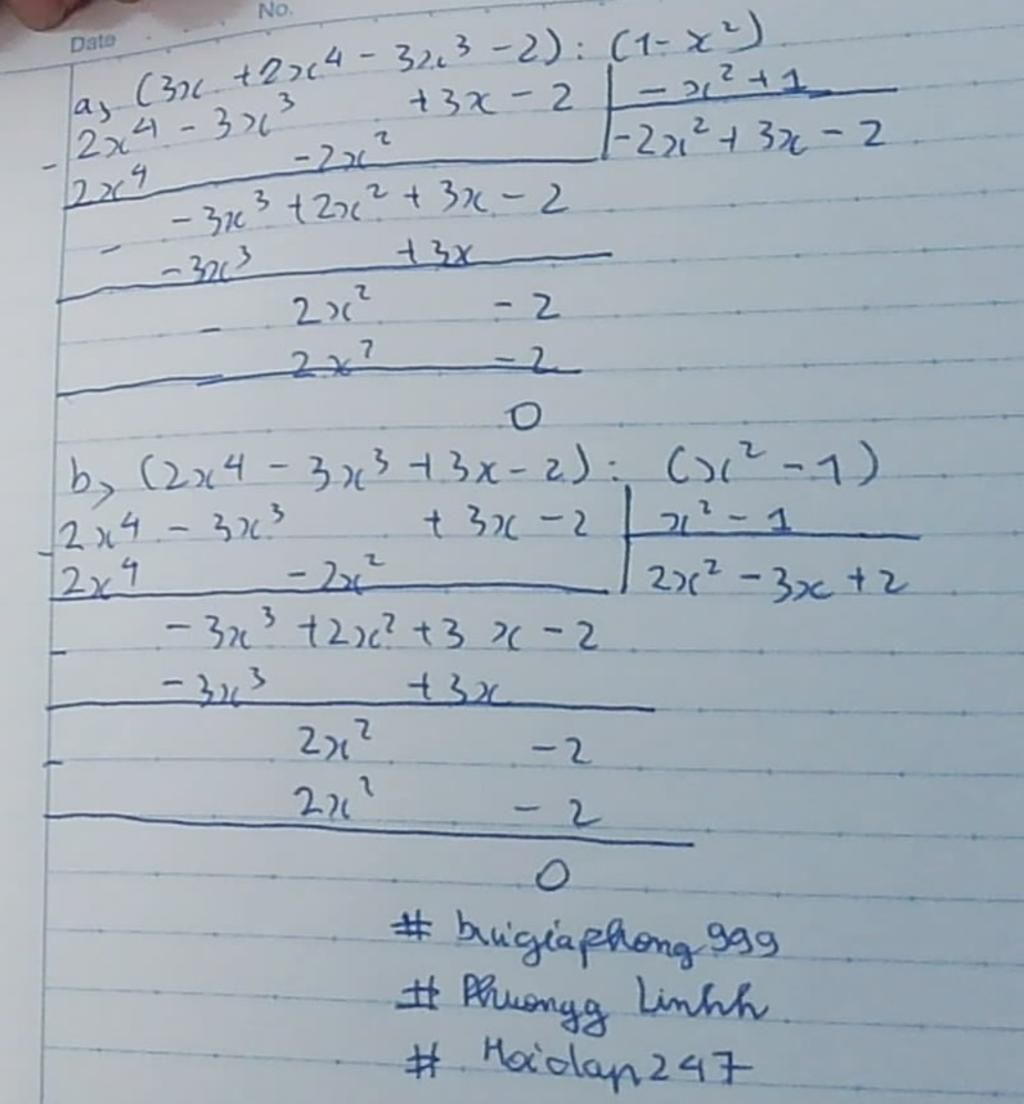 Date No.
a, (3x + 2x⁴ - 3x³ - 2) : (1 - x²)
2x⁴ - 3x³ + 3x - 2 | - x² + 1
- 2x⁴ - 2x² | -2x² + 3x - 2
- 3x³ + 2x² + 3x - 2
- -3x³ + 3x
2x² - 2
- 2x² - 2
0
b, (2x⁴ - 3x³ + 3x - 2) : (x² - 1)
2x⁴ - 3x³ + 3x - 2 | x² - 1
- 2x⁴ - 2x² | 2x² - 3x + 2
- 3x³ + 2x² + 3x - 2
- - 3x³ + 3x
2x² - 2
- 2x² - 2
0
# buigiaphong999
# Phuongg Linhh
# Hoidap247